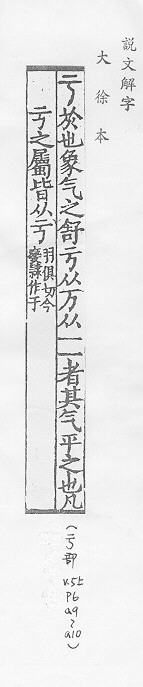 説文解字
大徐本
亏於也象气之舒亏从丂从一一者其气平之也凡
亏之屬皆从亏羽俱切今
變隸作于
(亏部 v.5上
P6
a9
~
a10)